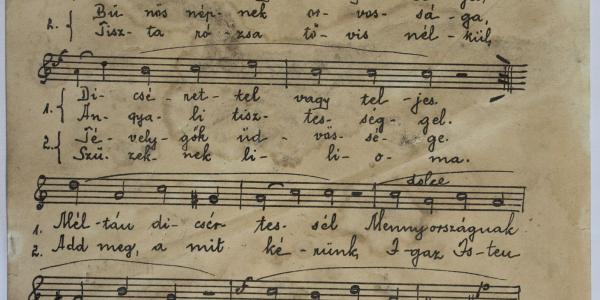 Bű- nös nép- nek or- vos- sá- ga,
2. { Tisz- ta ró- zsa tö- vis nél- kül,
1. { Di- csé- ret- tel vagy tel- jes.
An- gya- li tisz- tes- ség- gel.
2. { Té- vely- gők üd- vös- sé- ge.
Szü- zek- nek li- li- o- ma.
dolce
1. Mél- tán di- csér- tes- sél Mennyországnak
2. Add meg, a mit ké- rünk, I- gaz Is- ten
f p